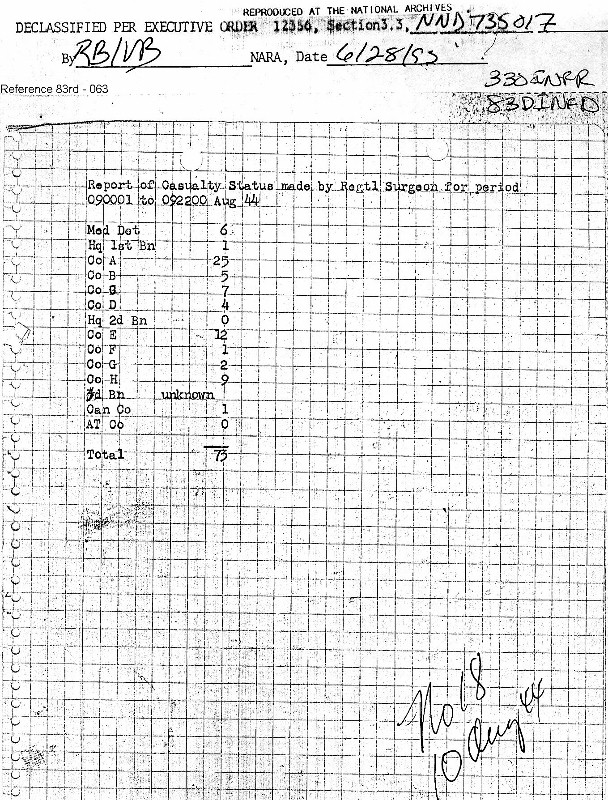 REPRODUCED AT THE NATIONAL ARCHIVES
DECLASSIFIED PER EXECUTIVE ORDER 12356, Section 3.3, NND 735017
By RB/VB NARA, Date 6/28/93
Reference 83rd - 063
330INFR
83DINFD
Report of Casualty Status made by Regtl Surgeon for period
090001 to 092200 Aug 44
Med Det 6
Hq 1st Bn 1
Co A 25
Co B 5
Co C 7
Co D 4
Hq 2d Bn 0
Co E 12
Co F 1
Co G 2
Co H 9
3d Bn unknown
Can Co 1
AT Co 0
Total 73
No 18
10 Aug 44